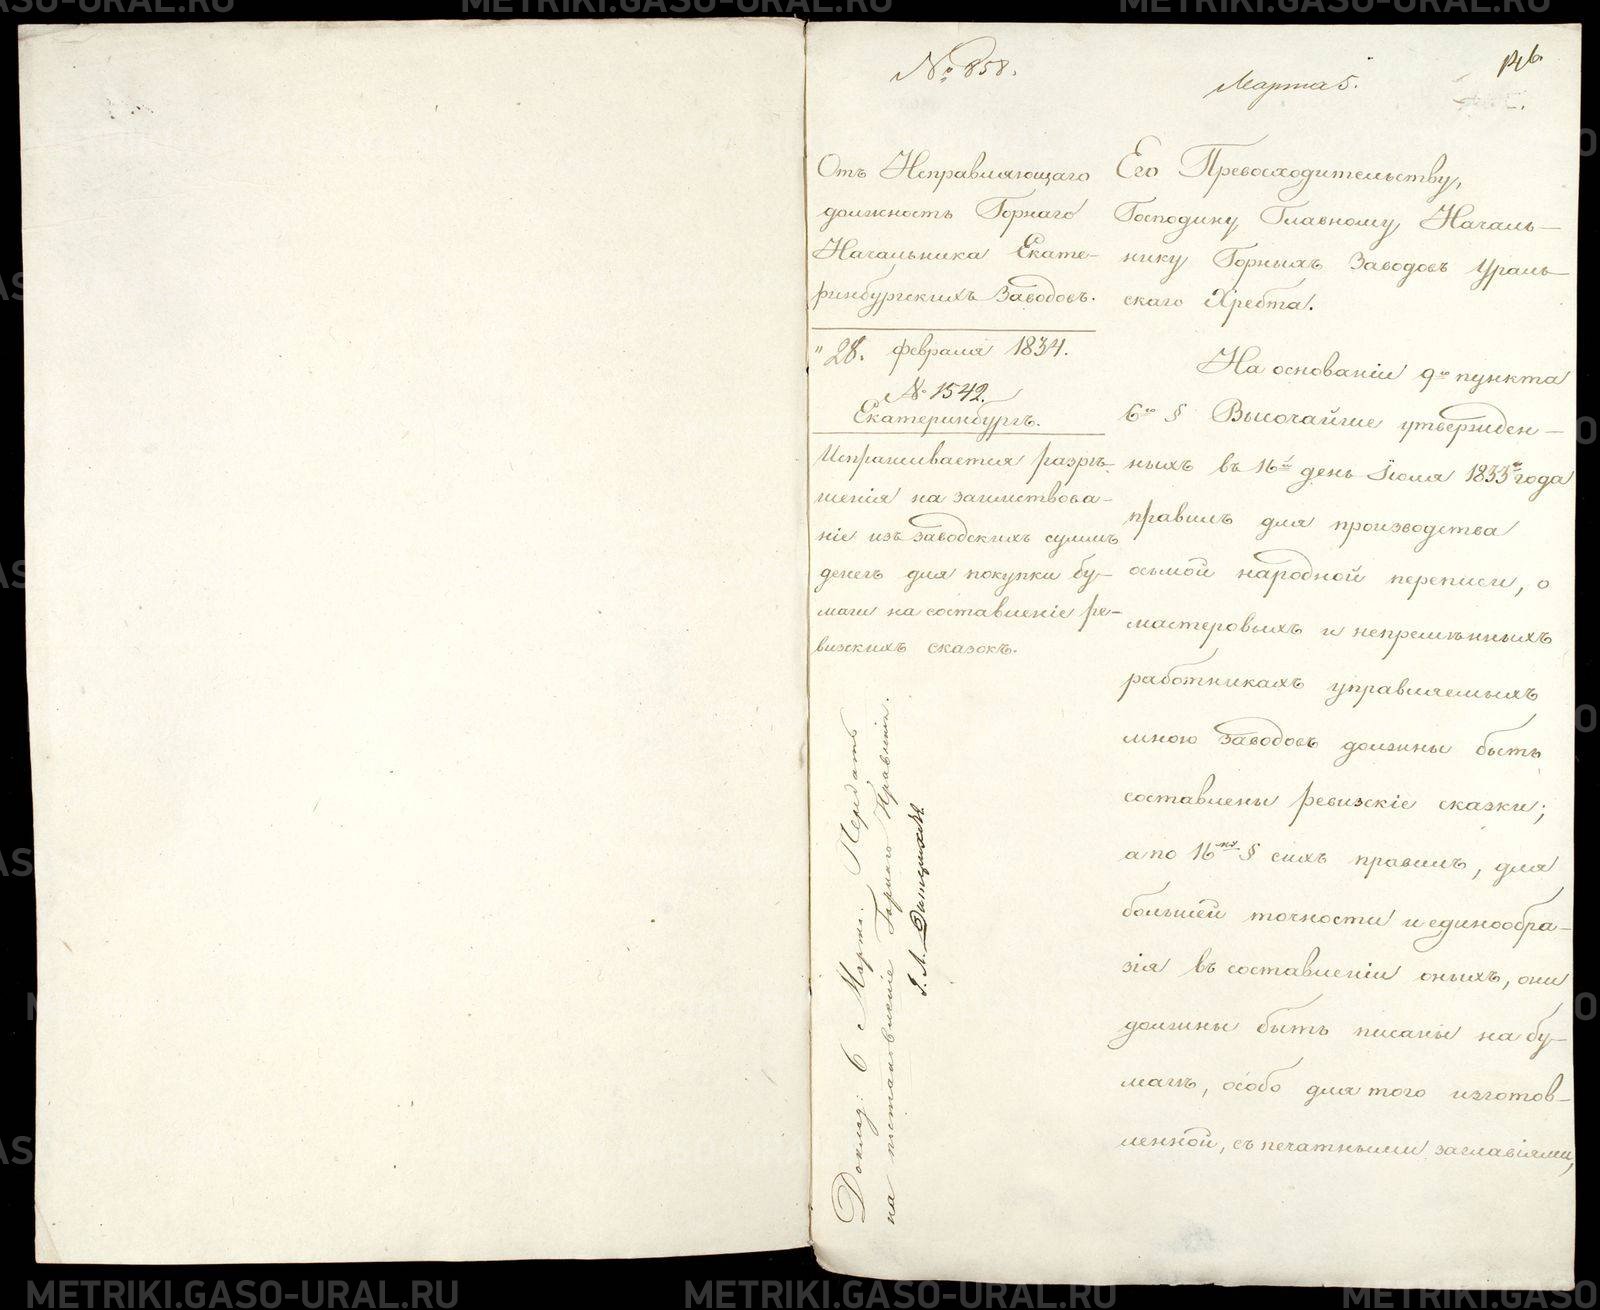 № 858.
Марта 5.
Отъ Исправляющаго
должность Горнаго
Начальника Екате-
ринбургскихъ Заводовъ.
"28. февраля 1834.
№ 1542.
Екатеринбургъ.
Испрашивается разрѣ-
шенія на заимствова-
ніе изъ заводскихъ суммъ
денегъ для покупки бу-
маги на составленіе ре-
визскихъ сказокъ.
Доклад: 6 Марта. Передать
на постановленіе Горнаго Правленія.
Его Превосходительству,
Господину Главному Началь-
нику Горныхъ Заводовъ Ураль-
скаго Хребта.
На основаніи 9го пункта
6го § Высочайше утвержден-
ныхъ въ 16й день Іюня 1833го года
правилъ для производства
осьмой народной переписи, о
мастеровыхъ и непремѣнныхъ
работникахъ управляемыхъ
мною заводовъ должны быть
составлены ревизскіе сказки;
а по 16му § сихъ правилъ, для
большей точности и единообра-
зія въ составленіи оныхъ, они
должны быть писаны на бу-
магѣ, особо для того изготов-
ленной, съ печатными заглавіями,
METRIKI.GASO-URAL.RU